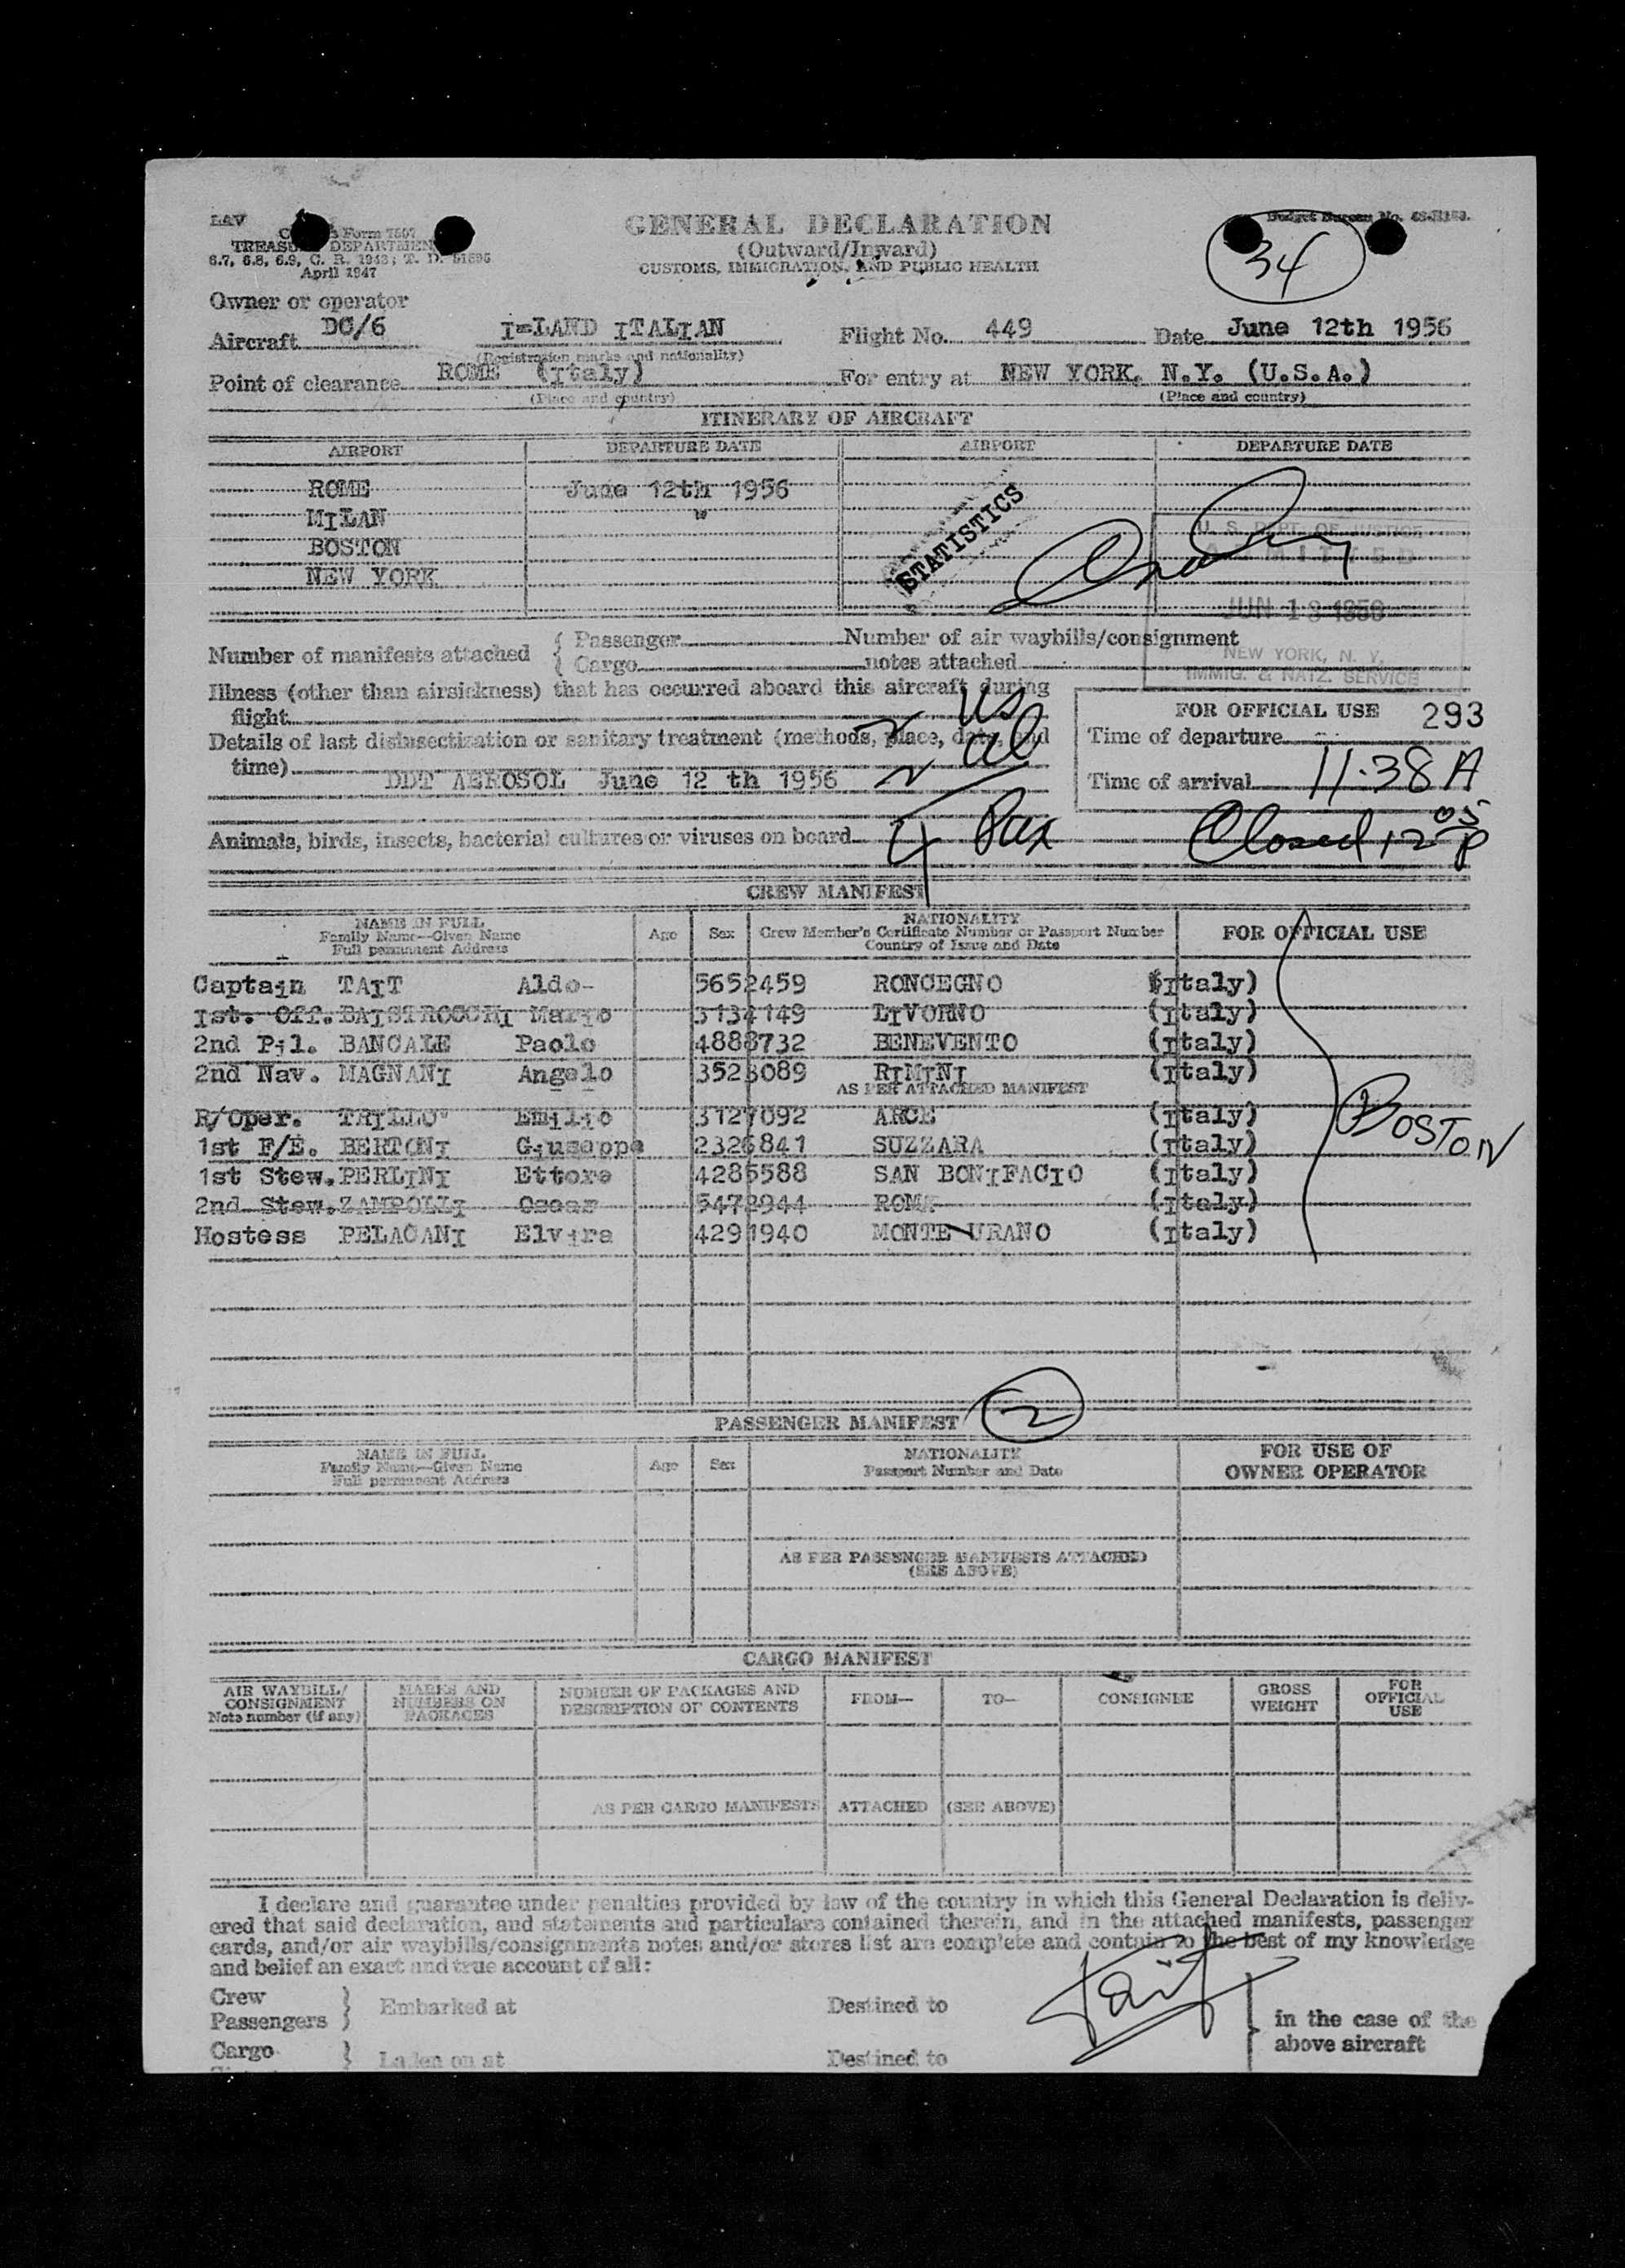 LAV
Form 7507
GENERAL DECLARATION
Budget Bureau No.
TREASU DEPARTMEN
(Outward/Inward)
34
6.7, 6.8, 6.9, C. R. 1943; T. D. 51696
CUSTOMS, IMMIGRATION, AND PUBLIC HEALTH
April 1947
Owner or operator
Aircraft DC/6 I=LAND ITALIAN Flight No. 449 Date June 12th 1956
(Registration marks and nationality)
Point of clearance ROME (Italy) For entry at NEW YORK, N.Y. (U.S.A.)
(Place and country) (Place and country)
ITINERARY OF AIRCRAFT
AIRPORT DEPARTURE DATE AIRPORT DEPARTURE DATE
ROME June 12th 1956
MILAN "
BOSTON
NEW YORK
STATISTICS
U. S. DEPT. OF JUSTICE
ADMITTED
JUN 13 1956
NEW YORK, N. Y.
IMMIG. & NATZ. SERVICE
Number of manifests attached { Passenger Number of air waybills/consignment
{ Cargo notes attached
Illness (other than airsickness) that has occurred aboard this aircraft during
flight
FOR OFFICIAL USE 293
Details of last disinsectization or sanitary treatment (methods, place, date, and
time) DDT AEROSOL June 12 th 1956
2 US
2 al
4 Pax
Time of departure
Time of arrival 11.38 A
Closed 12 05 P
Animals, birds, insects, bacterial cultures or viruses on board
CREW MANIFEST
NAME IN FULL
Family Name—Given Name
Full permanent Address
Age Sex
NATIONALITY
Crew Member's Certificate Number or Passport Number
Country of Issue and Date
FOR OFFICIAL USE
Captain TAIT Aldo- 5652459 RONCEGNO (Italy)
1st. Off. BAISTROCCHI Mario 3134149 LIVORNO (Italy)
2nd Pil. BANCALE Paolo 4888732 BENEVENTO (Italy)
2nd Nav. MAGNANI Angelo 3523089 RIMINI (Italy)
AS PER ATTACHED MANIFEST
R/Oper. TRILLO' Emilio 3127092 ARCE (Italy)
1st F/E. BERTONI Giuseppe 2326841 SUZZARA (Italy)
1st Stew. PERLINI Ettore 4285588 SAN BONIFACIO (Italy)
2nd Stew. ZAMPOLLI Oscar 5472944 ROME (Italy)
Hostess PELACANI Elvira 4291940 MONTE URANO (Italy)
BOSTON
PASSENGER MANIFEST 2
NAME IN FULL
Family Name—Given Name
Full permanent Address
Age Sex
NATIONALITY
Passport Number and Date
FOR USE OF
OWNER OPERATOR
AS PER PASSENGER MANIFESTS ATTACHED
(SEE ABOVE)
CARGO MANIFEST
AIR WAYBILL/
CONSIGNMENT
Note number (if any)
MARKS AND
NUMBERS ON
PACKAGES
NUMBER OF PACKAGES AND
DESCRIPTION OF CONTENTS
FROM— TO— CONSIGNEE
GROSS
WEIGHT
FOR
OFFICIAL
USE
AS PER CARGO MANIFESTS ATTACHED (SEE ABOVE)
I declare and guarantee under penalties provided by law of the country in which this General Declaration is deliv-
ered that said declaration, and statements and particulars contained therein, and in the attached manifests, passenger
cards, and/or air waybills/consignments notes and/or stores list are complete and contain to the best of my knowledge
and belief an exact and true account of all:
Crew
Passengers } Embarked at Destined to
Tait
in the case of the
above aircraft
Cargo } Laden on at Destined to